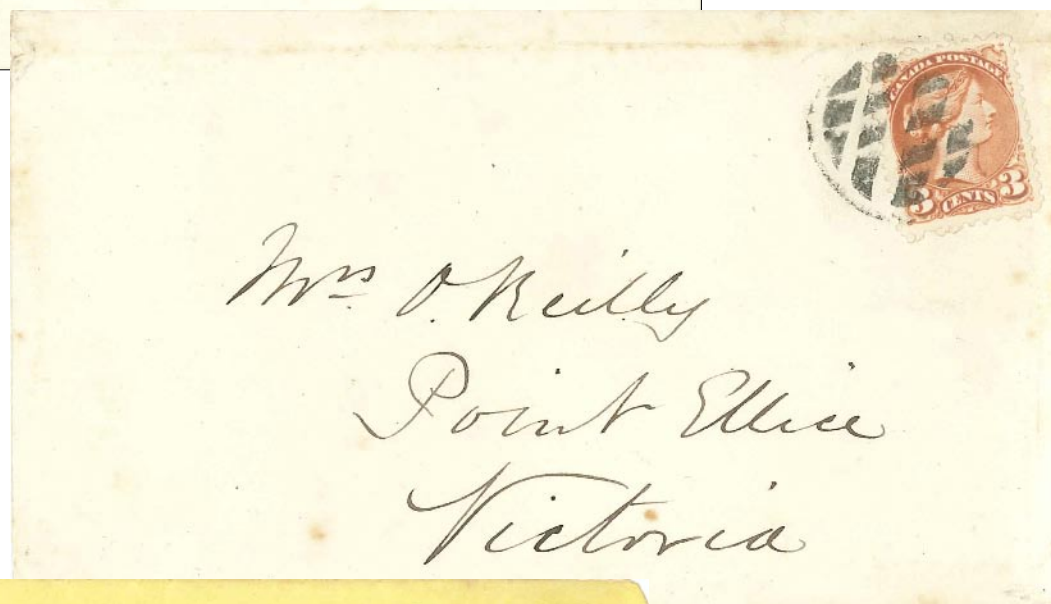 CANADA POSTAGE
3 CENTS 3
Mrs O'Reilly
Point Ellice
Victoria